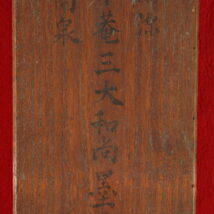 庵三大和尚墨
泉